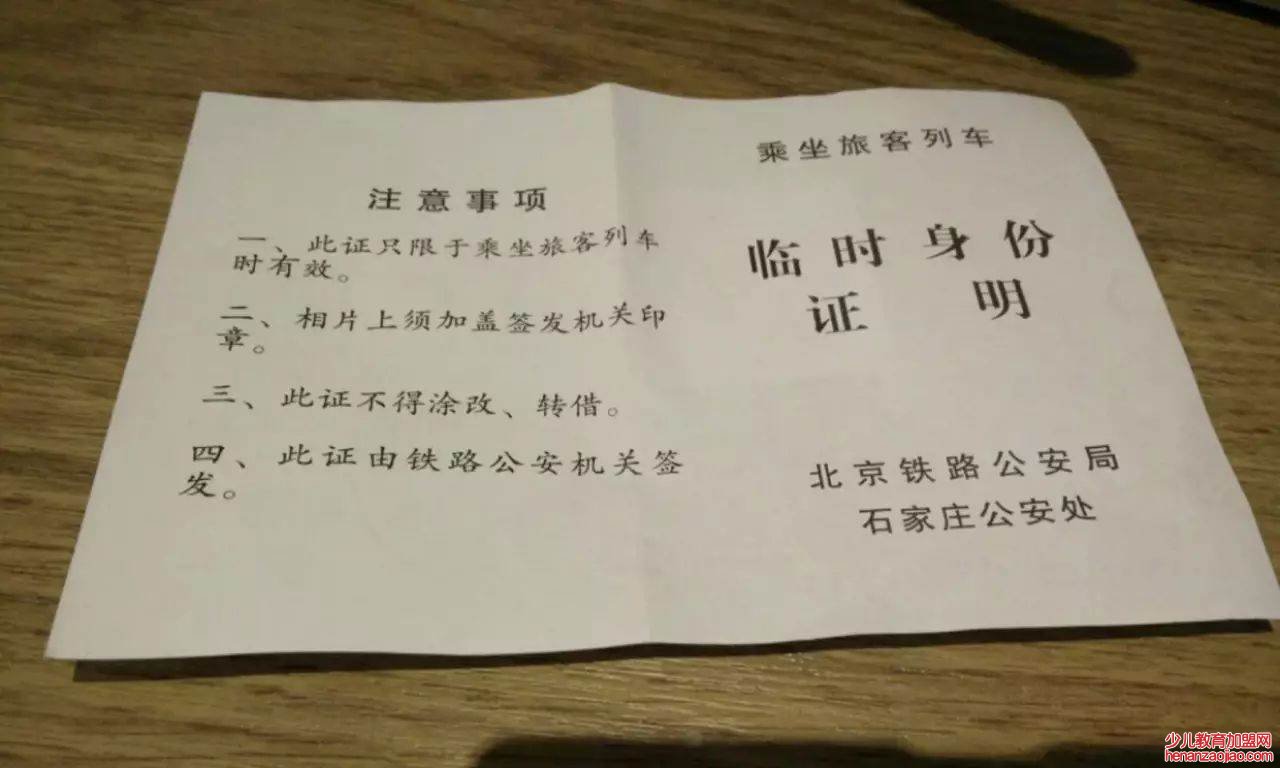 注意事项
一、此证只限于乘坐旅客列车
时有效。
二、相片上须加盖签发机关印
章。
三、此证不得涂改、转借。
四、此证由铁路公安机关签
发。
乘坐旅客列车
临时身份
证明
北京铁路公安局
石家庄公安处
少儿教育加盟网
henanzaojiao.com